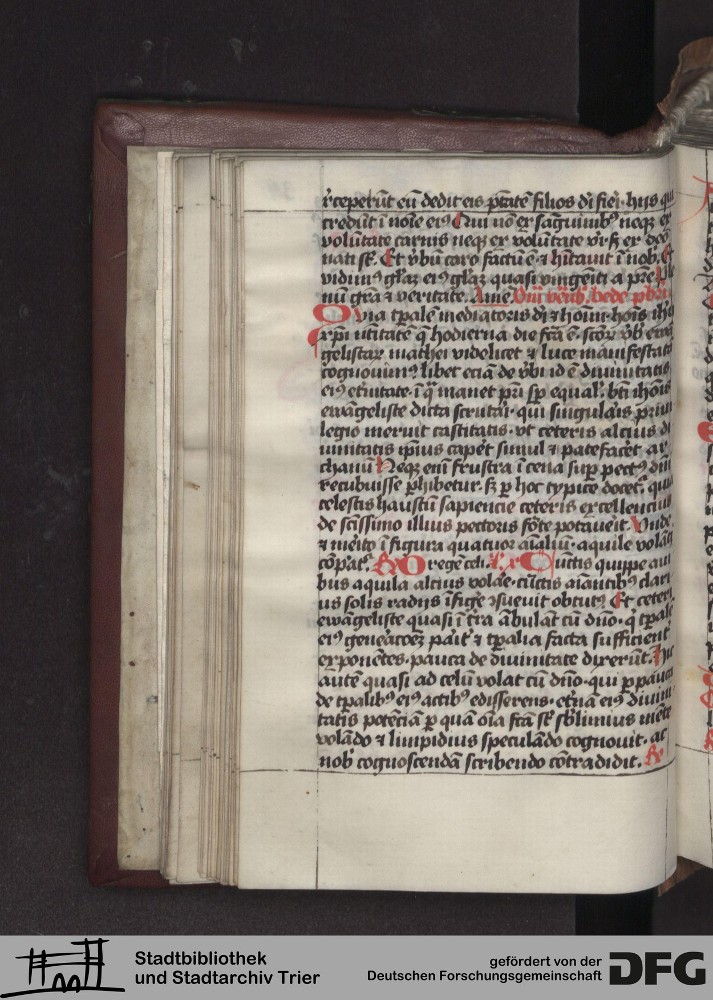 rceperūt eū dedit eis ptātē filios di fieri hijs qui
credūt ī noīe eiꝰ Qui nō ex saguinibꝰ neqꝫ ex
volūtate carnis neqꝫ ex volūtate viri sꝫ ex deo
nati sūt. Et v̄bū caro factū ē ⁊ hītauit ī nob̄. Et
vidimꝰ glāꝫ eiꝰ glāꝫ quasi vnigeniti a pr̄e ple
nū grā ⁊ veritate. Amē. Om̄l' veñl' bede pb̄ri
Quia tp̄ale mediatoris di ⁊ hoīm hoīs ihū
xpī natiuitatē q̄ hodierna die fcā ē. scōꝝ v̄b ewā
gelistaꝝ mathei videlicet ⁊ luce manifestatā
cognouimꝰ libet eciā de v̄bi id ē diuinitatis
eiꝰ et̄nitate ī q̄ manet p̄ri sp̄ equal'. bt̄i ioh̄is
ewāgeliste dicta scrutari. qui singul'ris priui
legio meruit castitatis. vt ceteris alcius di
uinitatis ip̄ius cap̄et simul ⁊ patefac̄et ar
chanū Neqꝫ enī frustra ī cena suꝑ pectꝰ dn̄i
recubuisse ꝑhibetur. sꝫ ꝑ hoc typice docet̄. quia
celestis haustū sapiencie ceteris excellencius
de sc̄issimo illius pectoris fōte potauerit. Vnde
⁊ mēito ī figura quatuor aīaliū. aquile volāti
cōpat̄. Rx O regē celi. Lco Cūctis quippe aui
bus aquila alcius volāe. cūctis aīantibꝰ clari
us solis radijs īfigē ꝯsueuit obtutꝰ Et ceteri
ewāgeliste quasi ī t̄ra ābulāt cū dn̄o. q̄ tp̄alē
eiꝰ gen̄eacōeꝫ pait̄ ⁊ tp̄alia facta sufficient̄
exponētes. pauca de diuinitate dixerūt. Hic
autē quasi ad celū volat cū dn̄o. qui ꝑpauca
de tp̄alibꝰ eiꝰ actibꝰ edisserens. et̄nā eiꝰ diuini
tatis potēciā ꝑ quā oīa fcā sūt sb̄limius mēte
volādo ⁊ limpidius speculādo cognouit. ac
nob̄ cognoscendā scribendo cōtradidit. Rx
Stadtbibliothek
und Stadtarchiv Trier
gefördert von der
Deutschen Forschungsgemeinschaft
DFG